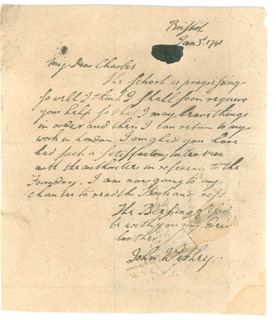 Bristol
Jan 3. 1741
My Dear Charles
The school is progressing
so well I think I shall soon require
your help so that I may leave things
in order and then I can return to my
work in London. I am glad you have
had such a satisfactory interview
with the authorities in reference to the
Foundery. I am now going to my
chamber to read the
The Blessing of
be with you my
brother
John Wesley.